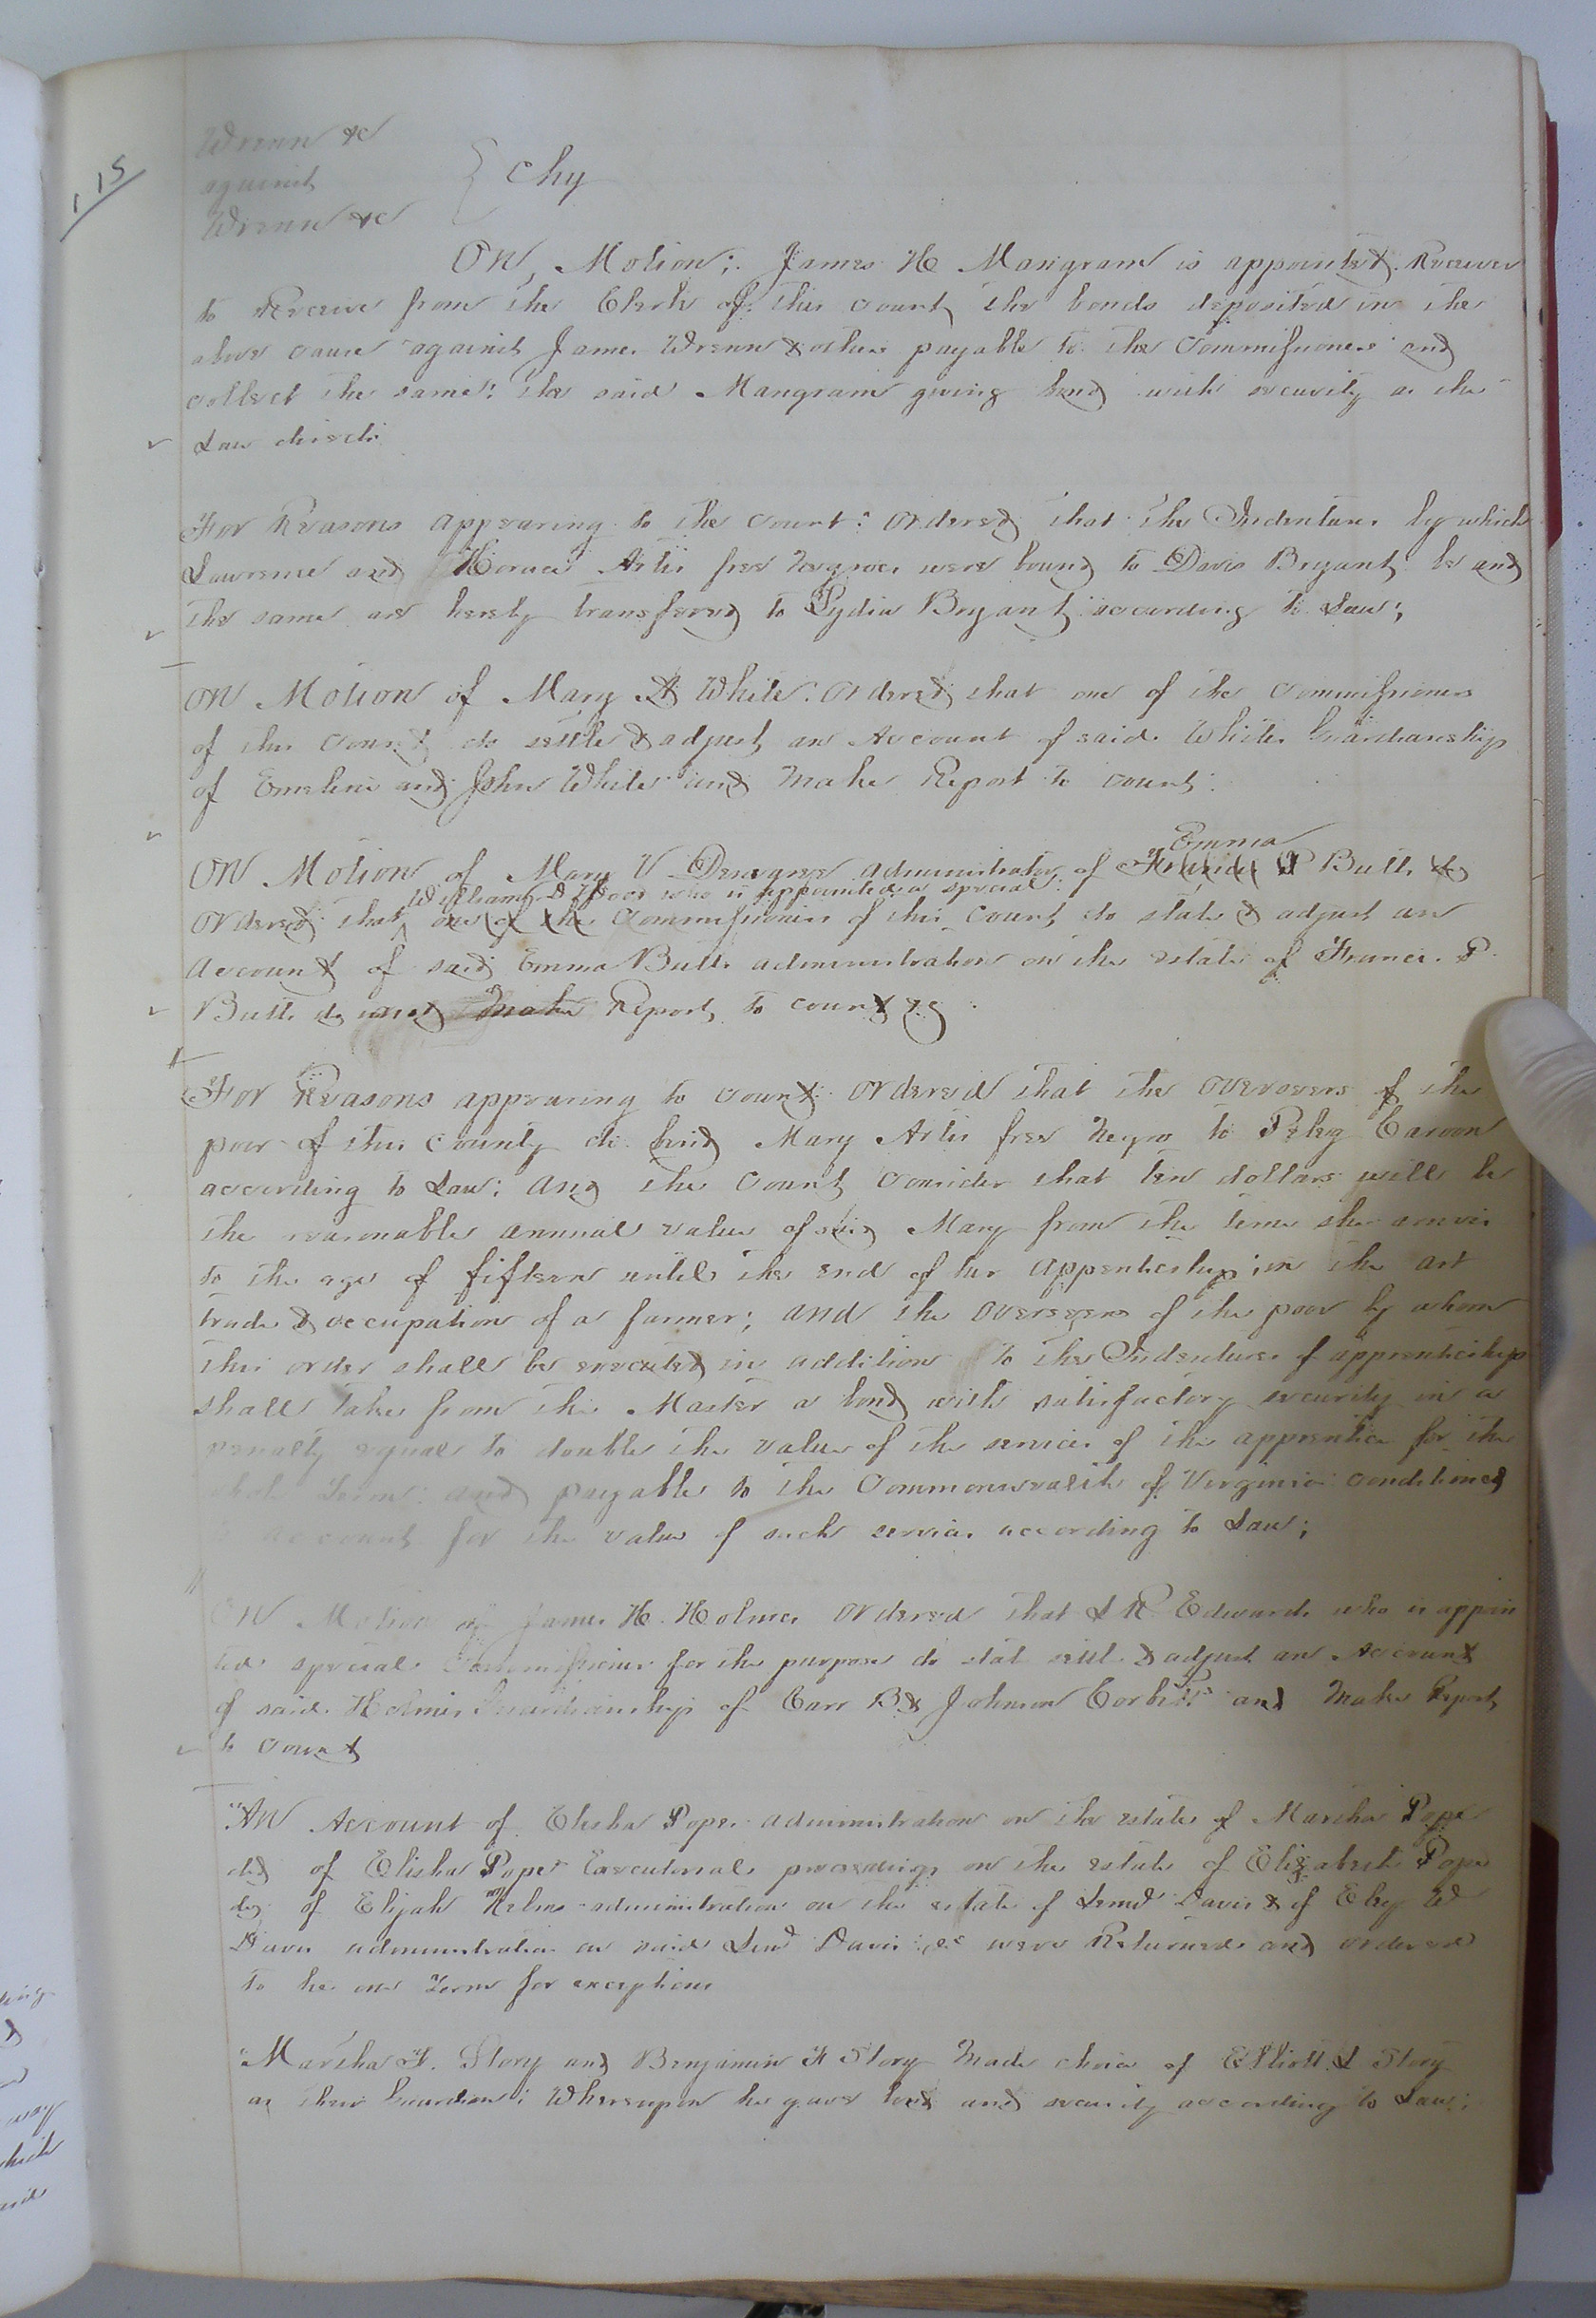 115
Wrenn &c
against
Wrenn &c
Chy
On, Motion; James H Mangram is appointed Receiver
to Receive from the Clerk of this court the bonds deposited in the
above cause against James Wrenn & others payable to the Commissioners and
collect the same: the said Mangram giving bond with security as the
Law directs
For Reasons appearing to the court: ordered that the Indentures by which
Lawrence and Horace Artis free negroes were bound to Davis Bryant be and
the same are hereby transfered to Lydia Bryant according to Law;
On Motion of Mary A White: Ordered that one of the Commissioners
of this Court do settle & adjust an Account of said Whites Guardianship
of Emeline and John White and Make Report to court.
Emma
On Motion of Mary V administrator of P Butts
William D Hood who is appointed a special
Ordered that one of the Commissioners of this Court do state & adjust an
account of said Emma Butts administration on the estate of Francis P.
Butts dc and Make Report, to court &c
For Reasons appearing to court: ordered that the overseers of the
poor of this County do bind Mary Artis free Negro to Peleg Caroon
according to Law: and the Court consider that ten dollars will be
the reasonable annual value of said Mary from the time she arrives
to the age of fifteen until the end of her appenticeship; in the art
trade & occupation of a farmer; and the overseers of the poor by whom
this order shall be executed in addition to the Indentures of apprenticeship
shall take from the Master a bond with satisfactory security in a
penalty equal to double the value of the services of the apprentice for the
whole Term: and payable to the Commonwealth of Virginia conditioned
account for the value of such services according to Law;
On Motion of James H. Holmes ordered that L R Edwards who is appoin
ted special Commissioner for the purpose do stat settle & adjust an Account
of said Holmes Guardianship of Carr B & Johnson Corbitt and Make Report
to Court
An Account of Elisha Popes administration on the estate of Martha Pope
decd of Elisha Popes Executorial proceedings on the estate of Elizabeth Pope
decd of Elijah Helms administration on the estate of Lemd Davis & of Eley W
Davis administration on said Lemd Davis &c were Returned and ordered
to lie one Term for exceptions
Martha F. Story and Benjamin F Story Made choice of Elliott L Story
as their Guardian; Whereupon he gave bond and security according to Law;